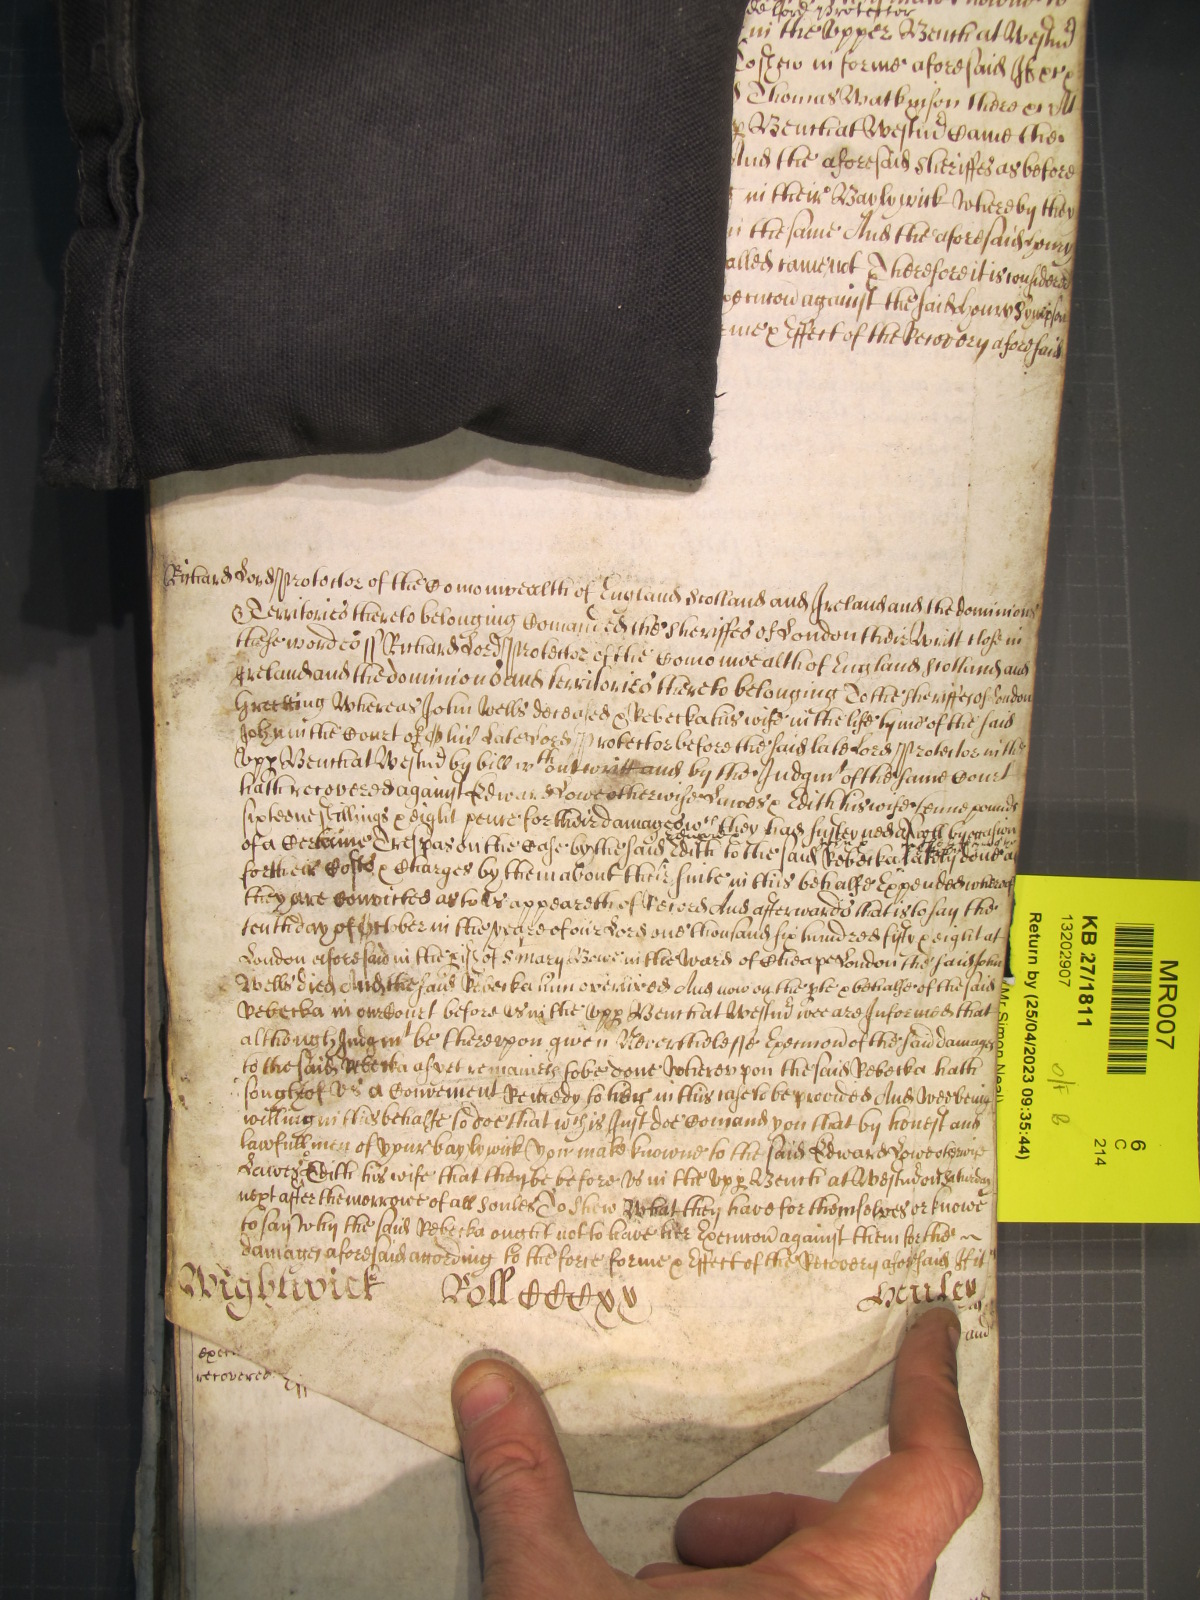 de Lord Protector
in the Upper Bench at Westmr
To shew in forme aforesaid If &c
Thomas Watkinson there
Bench at Westmr Came the
And the aforesaid Sheriffes as before
in their Baylywick whereby they
in the same And the aforesaid Henry
alled came not Therefore it is considered
execucon against the said Henry Sympson
me & Effect of the Recovery aforesaid
Richard Lord Protector of the Comonwealth of England Scotland and Ireland and the dominions
& Territories thereto belonging Comanded the Sheriffes of London their Writt close in
these wordes ss Richard Lord Protector of the Comonwealth of England Scotland and
Ireland and the dominions and territories thereto belonging To the Sheriffes of London
Greeting Whereas John Wells deceased & Rebecka his wife in the life tyme of the said
John in the Court of Late Lord Protector before the said late Lord Protector in the
Upp Bench at Westmr by bill wthout writt and by the Judgmt of the same Court
hath recovered against Edward Lowe otherwise Lawes & Edith his wife pounds
sixteene shillings & eight pence for their damages wch they had susteyned Aswell by occasion
of a Certaine Trespas on the Case by the said Edith to the said Rebecka lately done as
for their Costs & Charges by them about their suite in this behalfe Expended whereof
they are Convicted as to Us appeareth of Record And afterwards that is to say the
tenth day of October in the yeare of our Lord one thousand six hundred fifty & eight at
London aforesaid in the pish of St Mary Bowe in the Ward of Cheape London the said John
Wells died And the said Rebecka him overlived And now on the pte & behalfe of the said
Rebecka in our Court before Us in the Upp Bench at Westmr wee are Informed that
although Judgmt be thereupon given Neverthelesse Execucon of the said damages
to the said Rebecka as yet remaineth to be done Whereupon the said Rebecka hath
sought of Us a Convenient Remedy to her in this case to be provided And Wee being
willing in this behalfe to doe that wch is Just doe Comand you that by honest and
lawfull men of your baylywick you make knowne to the said Edward Lowe otherwise
Lawes & Edith his wife that they be before Us in the Upp Bench at Westmr on Saturday
next after the morrowe of all Soules To shew What they have for themselves or knowe
to say Why the said Rebecka ought not to have her Execucon against them for the
damages aforesaid according to the force forme & Effect of the Recovery aforesaid If it
Wightwick Roll CCCCxv Henley
and
Execu
recovered
MR007
6
C
214
KB 27/1811
13202907
O/F B
Mr Simon Neal
Return by (25/04/2023 09:35:44)